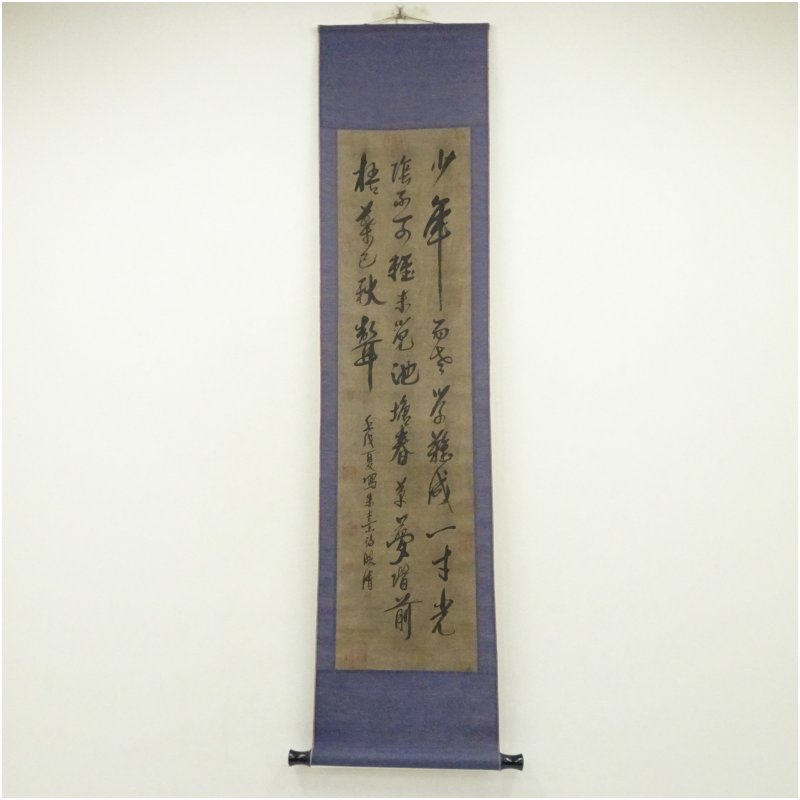 少年易老学難成一寸光
陰不可輕未覺池塘春草夢堦前
梧葉已秋聲
壬戌夏寫朱熹詩